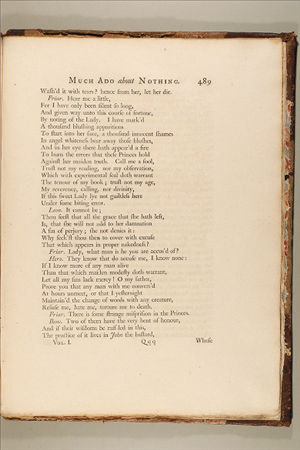 MUCH ADO about NOTHING. 489
Wash'd it with tears? hence from her, let her die.
Friar. Hear me a little,
For I have only been silent so long,
And given way unto this course of fortune,
By noting of the Lady. I have mark'd
A thousand blushing apparitions
To start into her face, a thousand innocent shames
In angel whiteness bear away those blushes,
And in her eye there hath appear'd a fire
To burn the errors that these Princes hold
Against her maiden truth. Call me a fool,
Trust not my reading, nor my observation,
Which with experimental seal doth warrant
The tenour of my book; trust not my age,
My reverence, calling, nor divinity,
If this sweet Lady lye not guiltless here
Under some biting error.
Leon. It cannot be;
Thou seest that all the grace that she hath left,
Is, that she will not add to her damnation
A sin of perjury; she not denies it:
Why seek'st thou then to cover with excuse
That which appears in proper nakedness?
Friar. Lady, what man is he you are accus'd of?
Hero. They know that do accuse me, I know none:
If I know more of any man alive
Than that which maiden modesty doth warrant,
Let all my sins lack mercy! O my father,
Prove you that any man with me convers'd
At hours unmeet, or that I yesternight
Maintain'd the change of words with any creature,
Refuse me, hate me, torture me to death.
Friar. There is some strange misprision in the Princes.
Bene. Two of them have the very bent of honour,
And if their wisdoms be mis-led in this,
The practice of it lives in John the bastard,
VOL. I. Qqq Whose